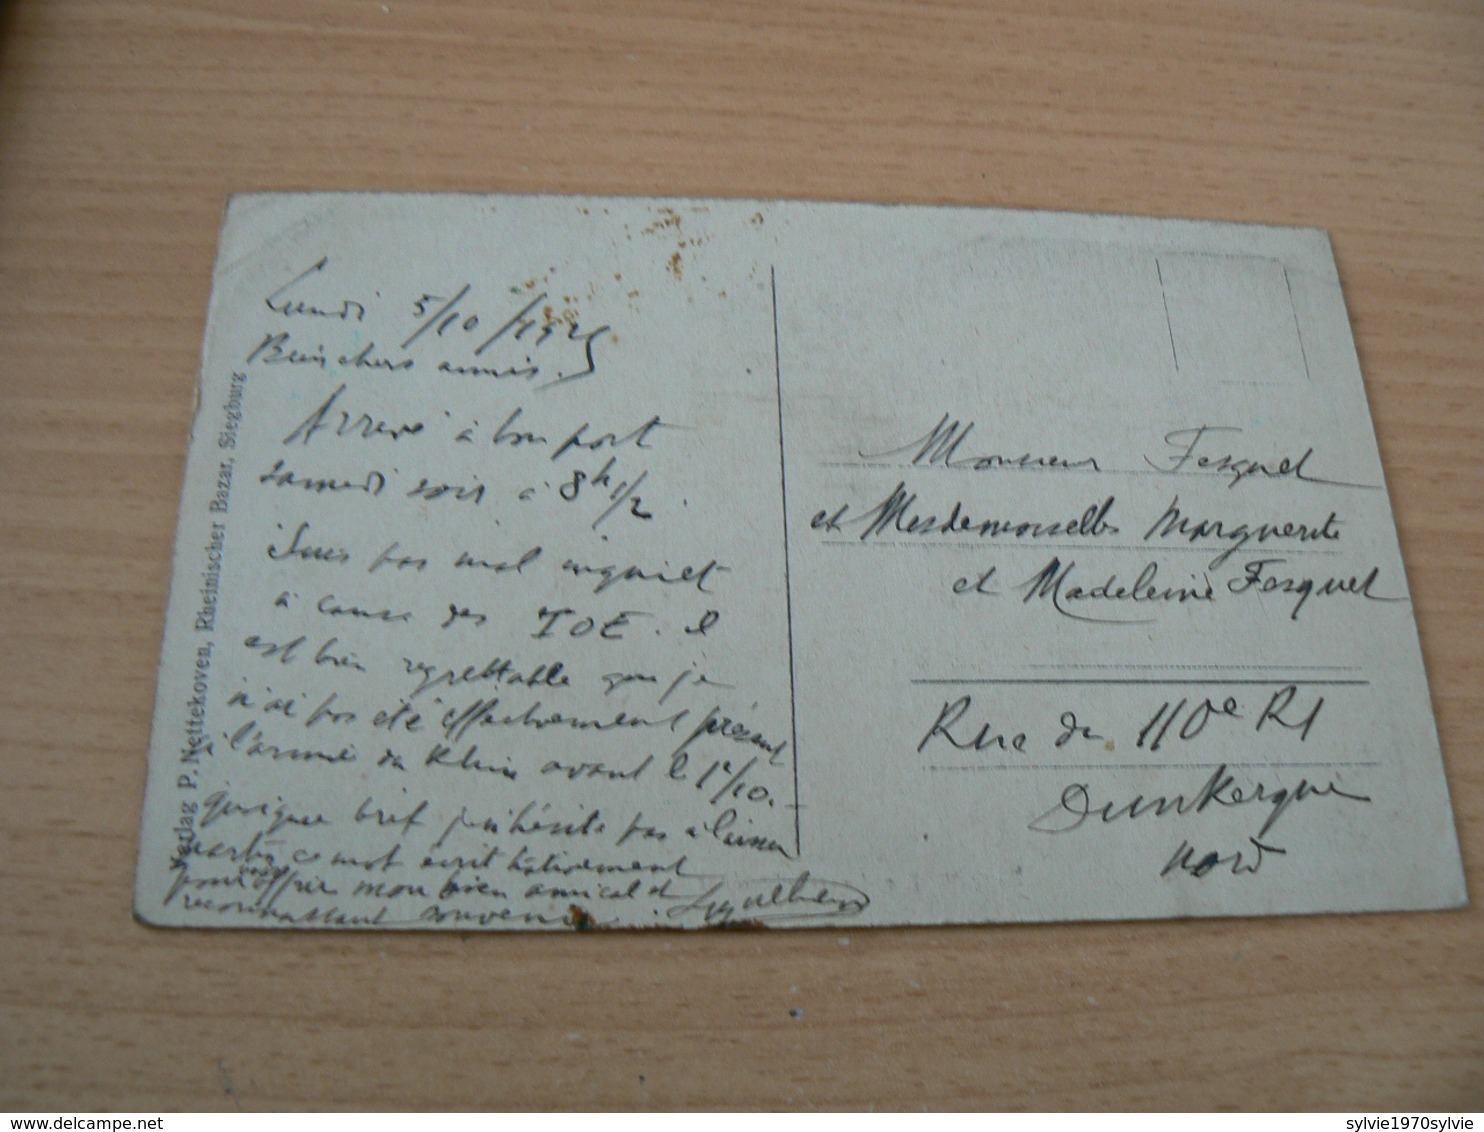 Lundi 5/10/1925
Bien chers amis.
Arrivé à bon port
samedi soir à 8h 1/2.
Suis pas mal inquiet
à cause des TOE. il
est bien regrettable que je
n'ai pas été effectivement présent
à l'armée du Rhin avant le 1r/10.-
quoique bref je n'hésite pas à laisser
partir ce mot écrit hâtivement
pour vous offrir mon bien amical et
reconnaissant souvenir.
Verlag P. Nettekoven, Rheinischer Bazar, Siegburg
Monsieur Fesquet
et Mesdemoiselles Marguerite
et Madeleine Fesquet
Rue du 110e RI
Dunkerque
Nord
sylvie1970sylvie
www.delcampe.net